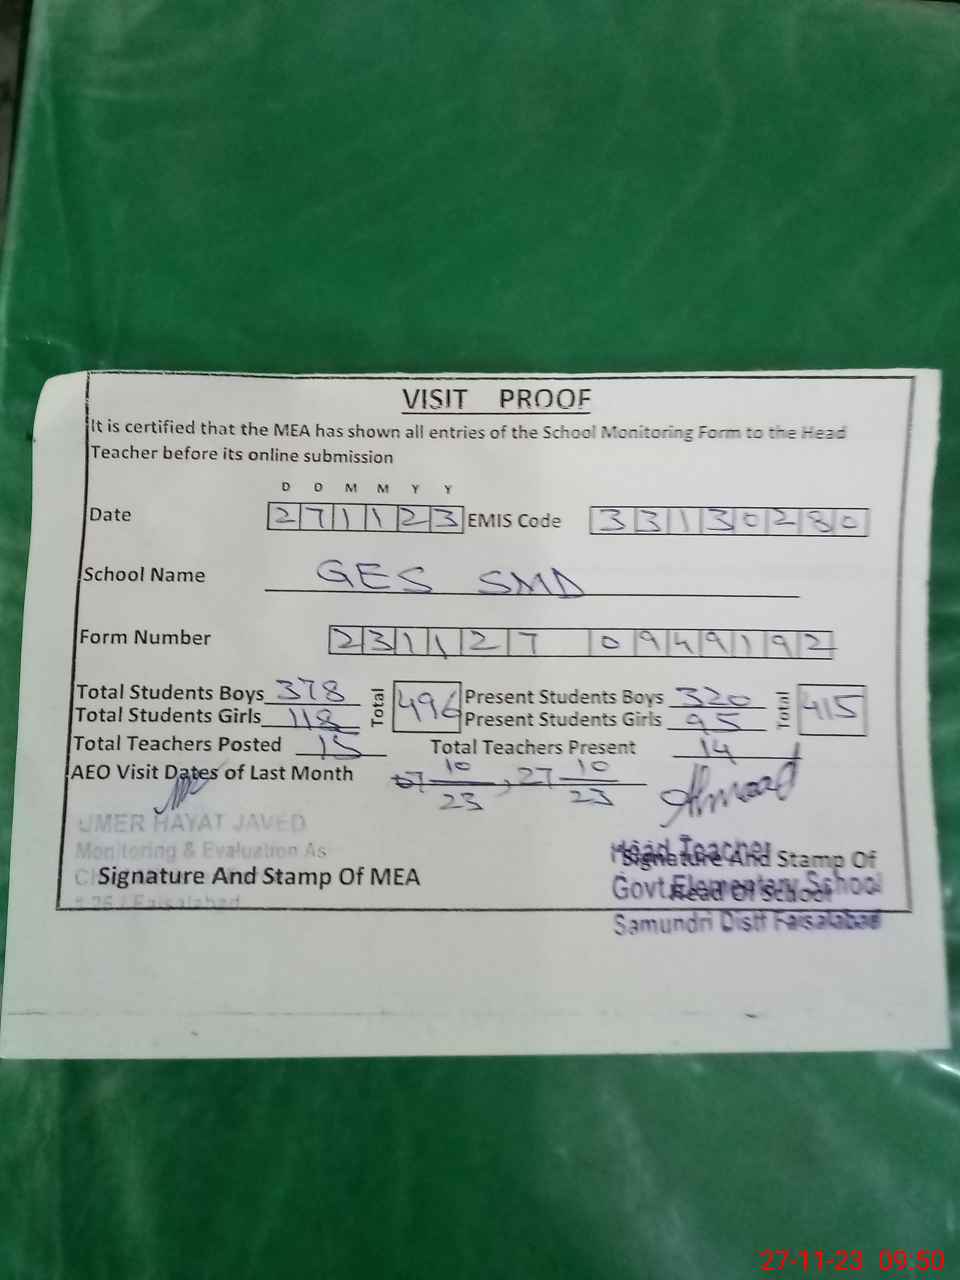 VISIT PROOF
It is certified that the MEA has shown all entries of the School Monitoring Form to the Head
Teacher before its online submission
D D M M Y Y
Date 271123 EMIS Code 33130280
School Name GES SMD
Form Number 231127 0949192
Total Students Boys 378 Total 496 Present Students Boys 320 Total 415
Total Students Girls 118 Present Students Girls 95
Total Teachers Posted 15 Total Teachers Present 14
AEO Visit Dates of Last Month 07 10/23, 27 10/23 Ahmad
UMER HAYAT JAVED
Monitoring & Evaluation As
Signature And Stamp Of MEA
Faisalabad
Head Teacher
Signature And Stamp Of
Govt Elementary School
Head Of School
Samundri Distt Faisalabad
27-11-23 09:50